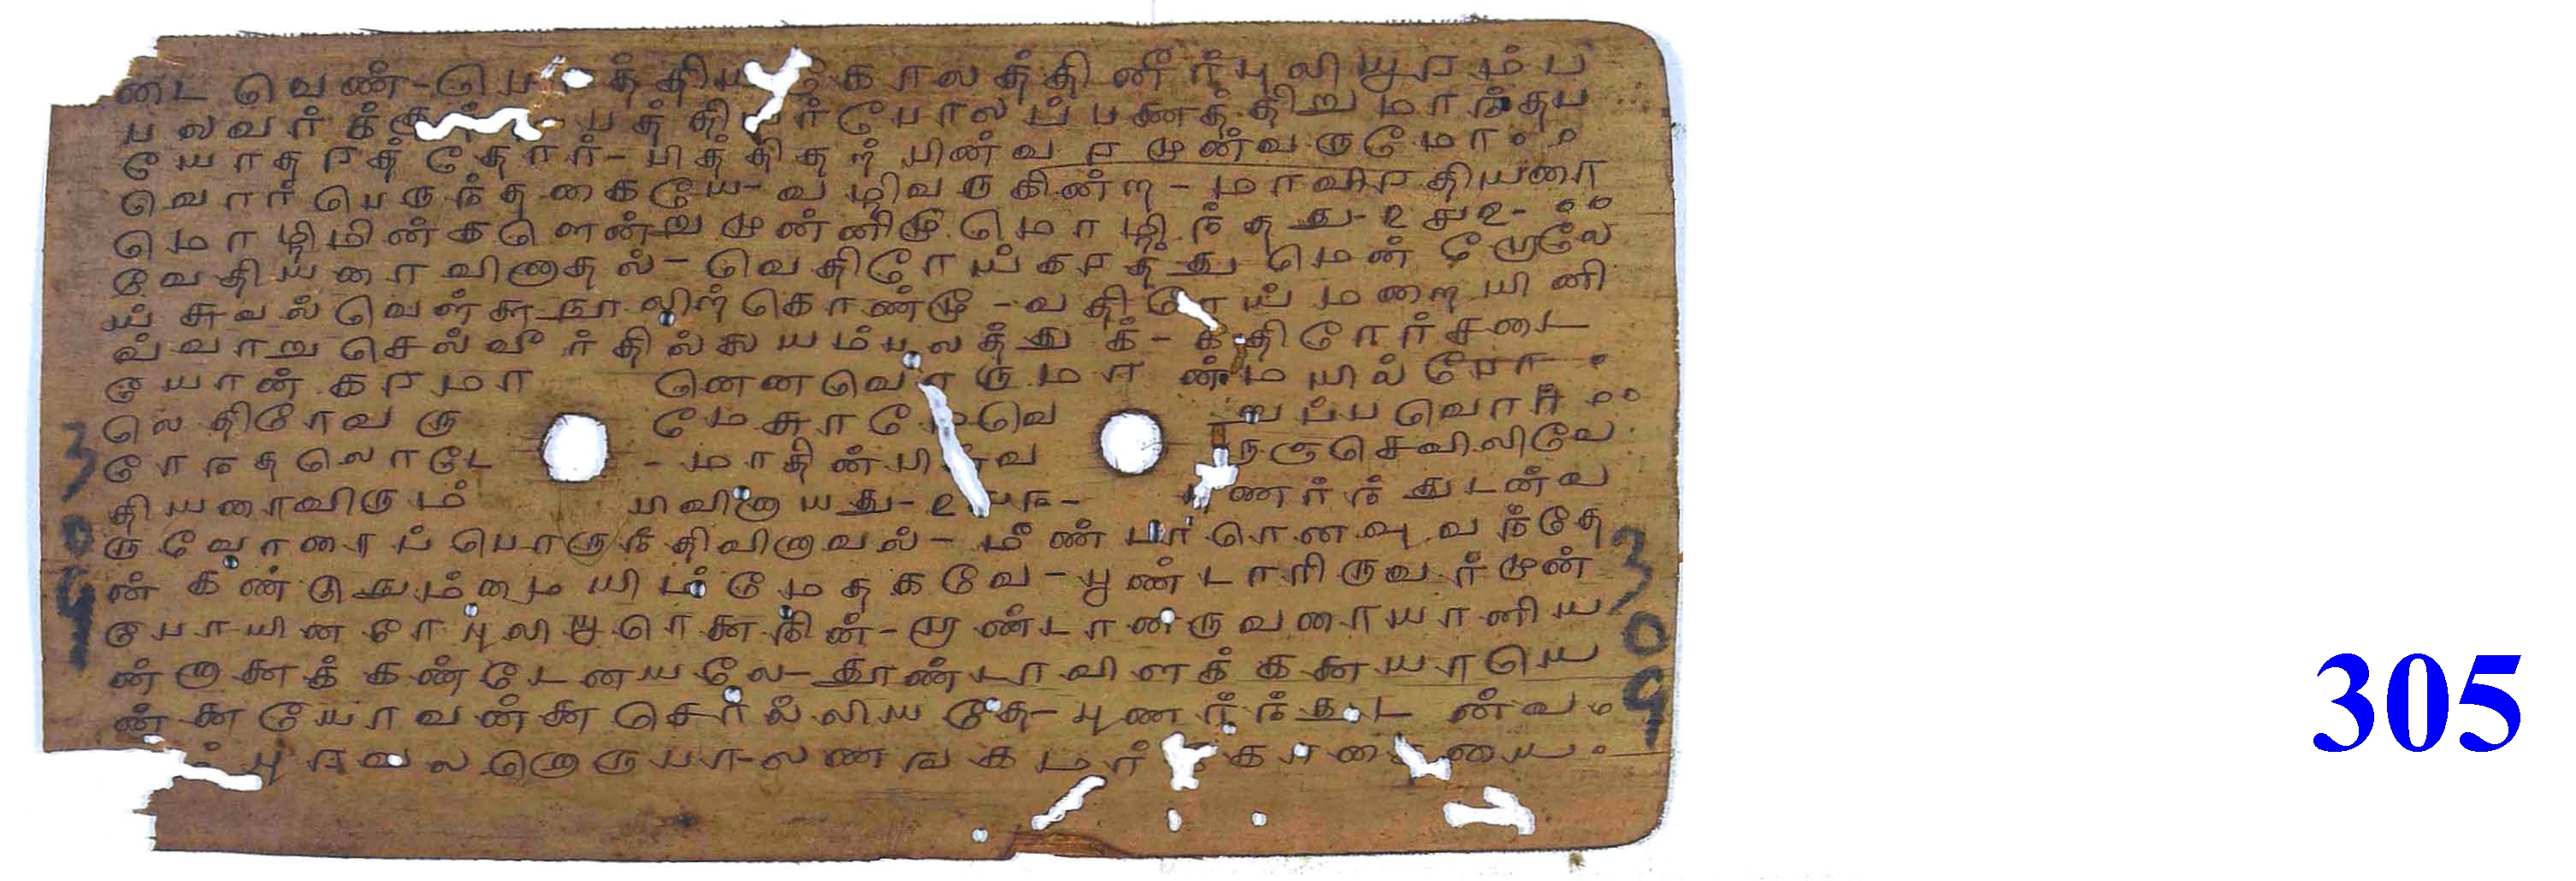 டை வெண்-பெ த்திய காலத்தினீர்புலியூரம்ப
பலவர்க்கு யத்தி ர்போலப்பணத்திறுமாந்தப
யோதரத் தோர்-பித்திதற்பின்வர முன்வருமோ
வொர்பெருந்தகையே-வழிவருகின்ற-மாவிரதியரை
மொழிமின்களென்று முன்னிமு மொழிந்தது-உசஉ-
வேதியரை வினாதல்-வெதிரேய்கரத்து மென் றோலே
ய்சுவல்வெள்சுநூலிற்கொண்மூ-வதிரேய் மறையினி
வ்வாறு செல்வீர் தில்லுயம்பலத்து க்-க திரேர்சடை
யோன் கரமா னெனவொருமான் மயில்போ
லெதிரேவரு மேசுரமேவெ றுப்பவொர்
ரேந்தலொடே -மாதின்பின்வ ருஞ்செவிலிவே
தியரைவிரும் பிவினாயது-உ ணர்ந்துடன்வ
ருவோரைப்பொருந்திவினாவல்-மீண்டாரெனவுவந்தே
ன் கண்டுநும்மையிம் மேதகவே-பூண்டாரிருவர்முன்
போயினரேபுலியூரெனைநின்-றாண்டானருவரையானிய
ன்றானைக் கண்டேனயலே-தூண்டாவிளக்கனையாயெ
ன்னையோவன்னை சொல்லியதே-புணர்ந்துடன்வ
புரவலனொருபா-லணங்கமர் காதையை